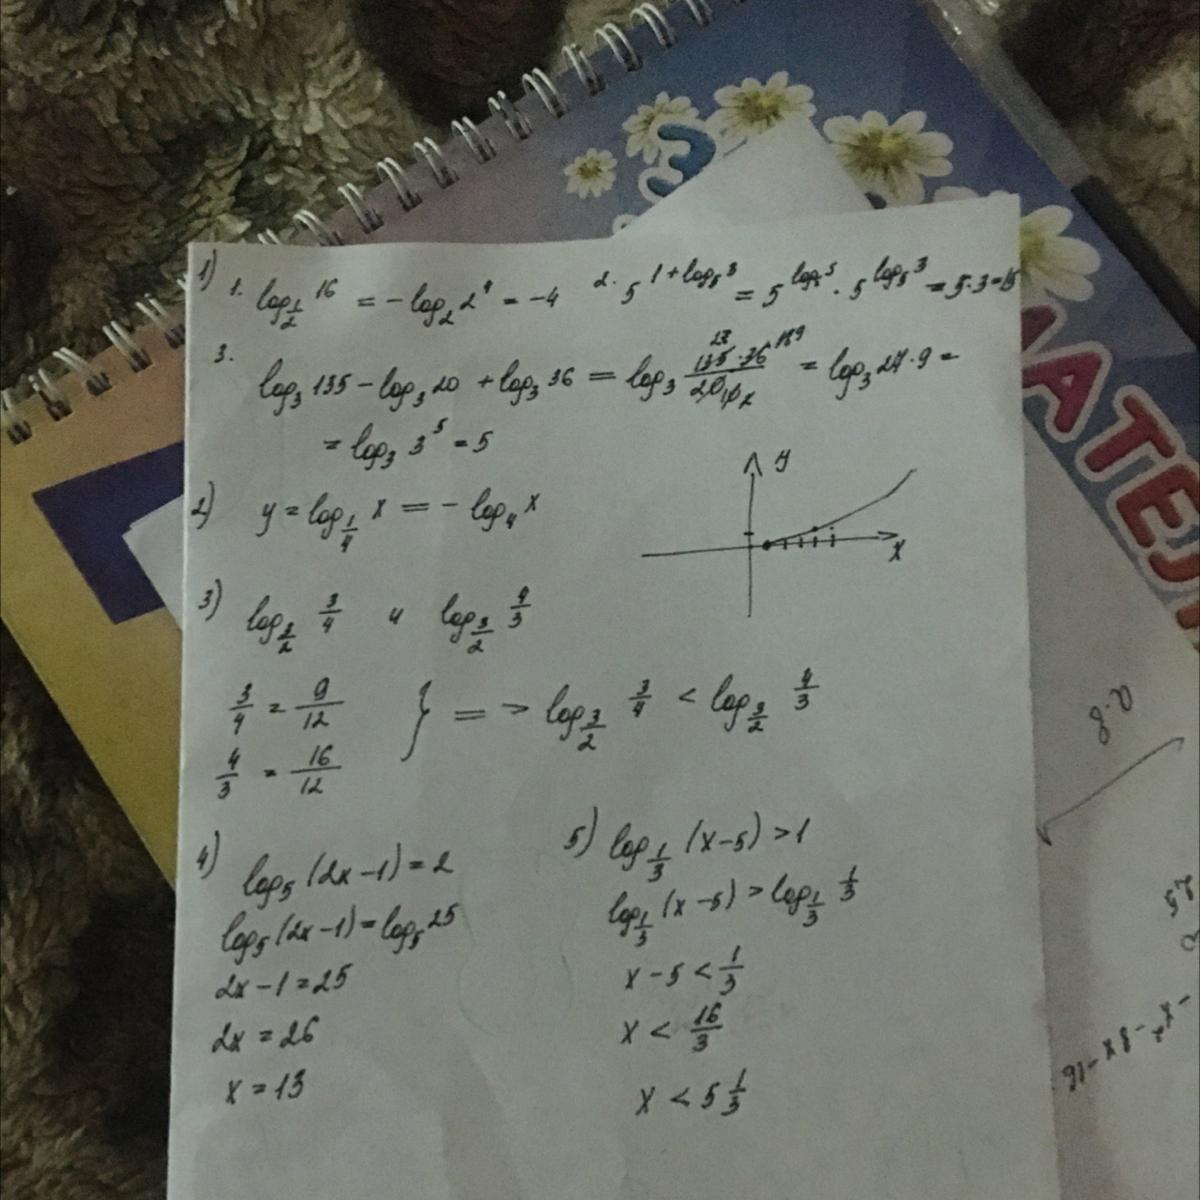 1) 1. log_{1/2} 16 = -log_2 2^4 = -4   2. 5^{1+log_5 3} = 5^{log_5 5} · 5^{log_5 3} = 5·3=15
3.
log_3 135 - log_3 20 + log_3 36 = log_3 \frac{135·36}{20} = log_3 27·9 =
= log_3 3^5 = 5
y
2) y = log_{1/4} x = -log_4 x
x
3) log_{3/2} 3/4 и log_{3/2} 4/3
3/4 = 9/12
4/3 = 16/12 } => log_{3/2} 3/4 < log_{3/2} 4/3
4) log_5 (2x-1) = 2
log_5 (2x-1) = log_5 25
2x-1=25
2x = 26
x = 13
5) log_{1/3} (x-5) > 1
log_{1/3} (x-5) > log_{1/3} 1/3
x-5 < 1/3
x < 16/3
x < 5 1/3
З
МАТЕ